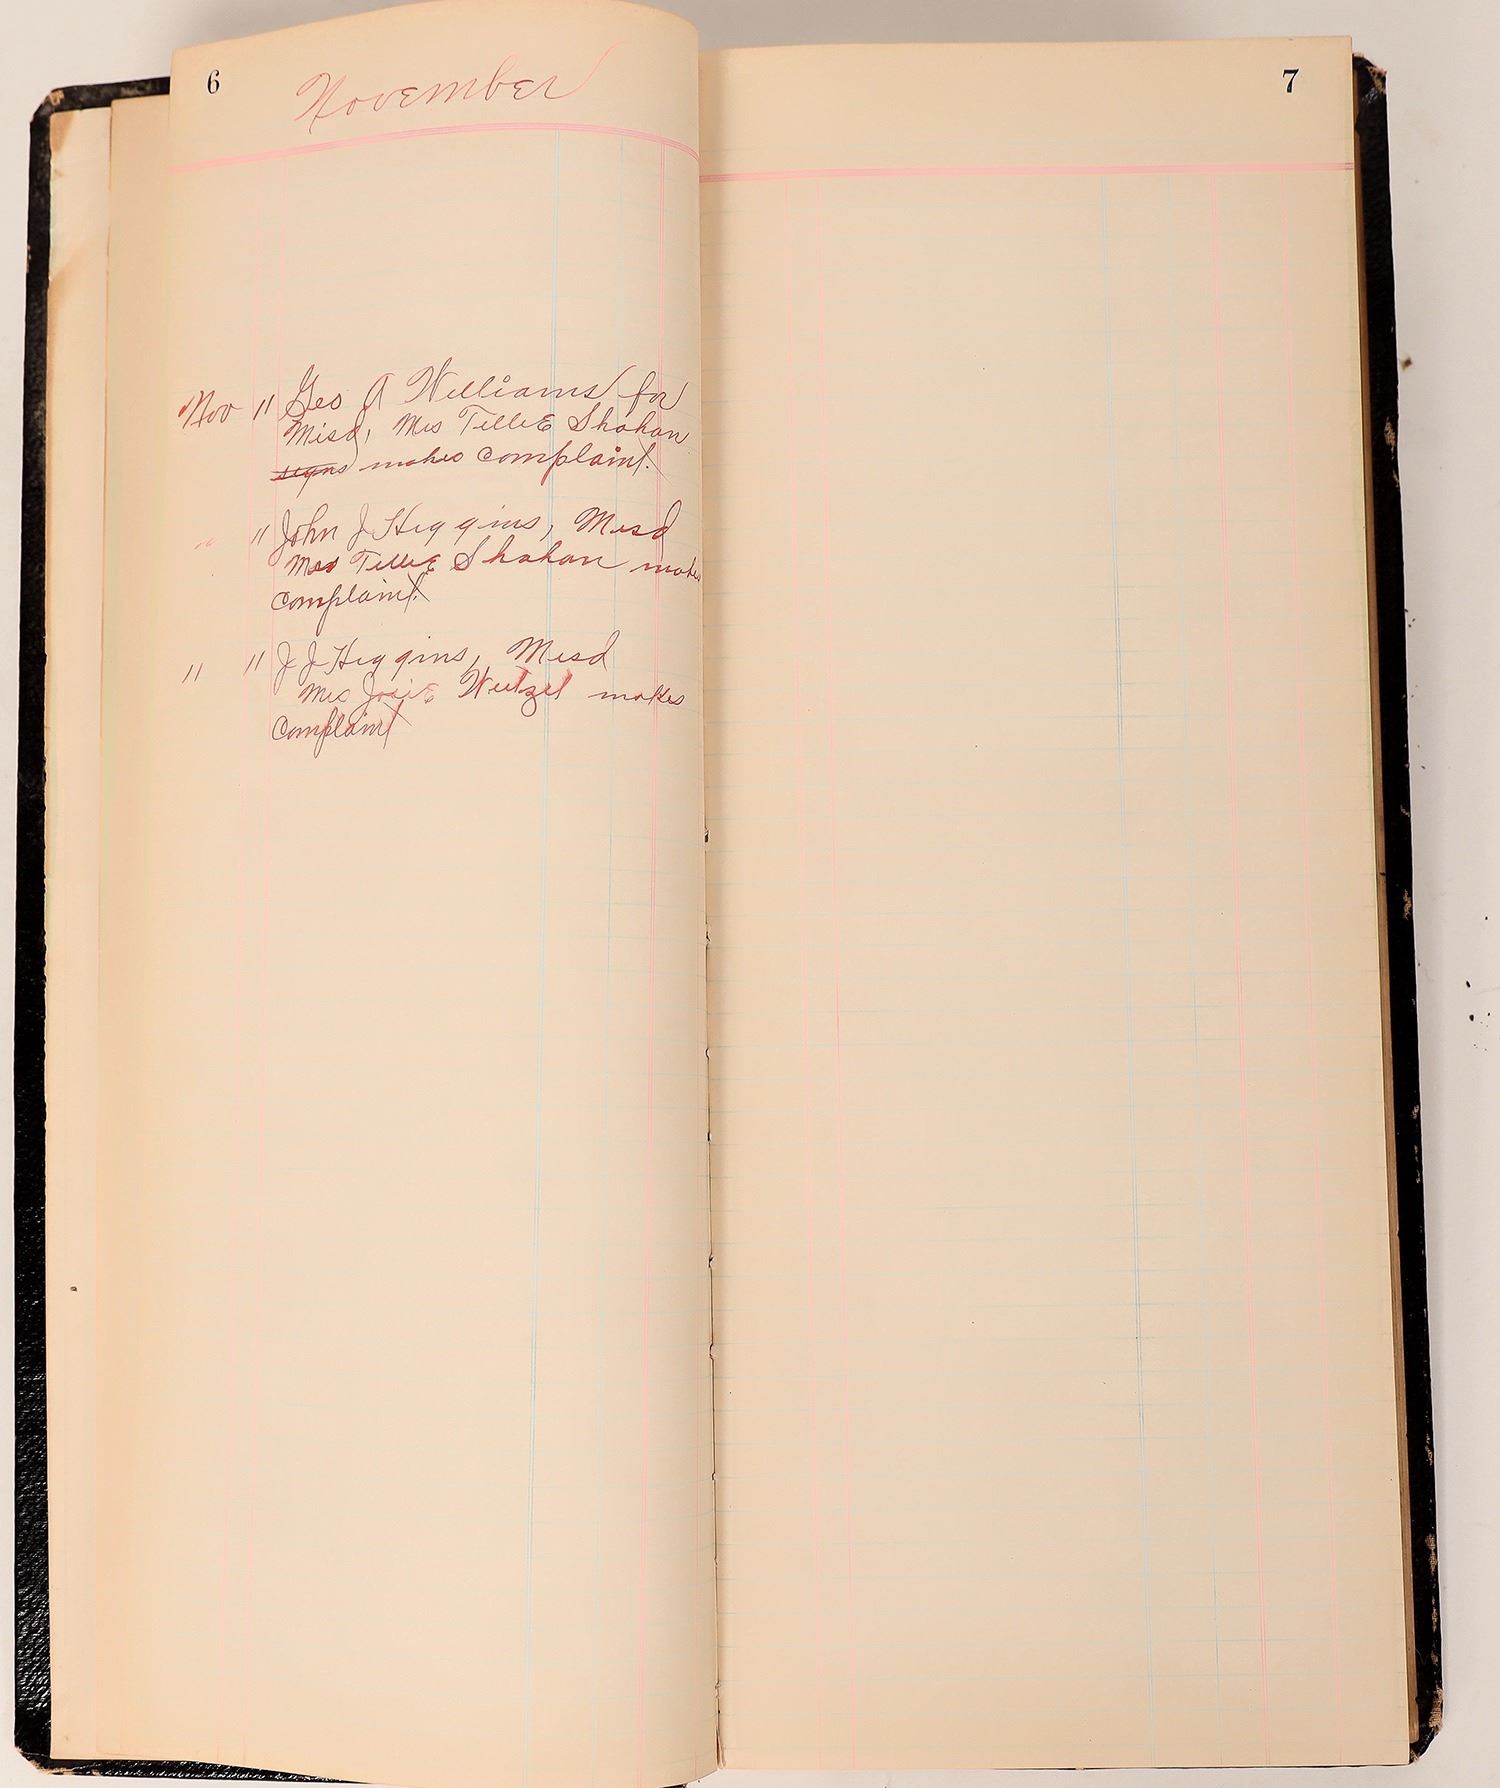 6 November
Nov " Geo A Williams for
Misd, Mrs Tillie Shahan
signs makes complaint.
" " John J Higgins, Misd
Mrs Tillie Shahan makes
complaint.
" " J J Higgins, Misd
Mrs Josie Wetzel makes
Complaint
7